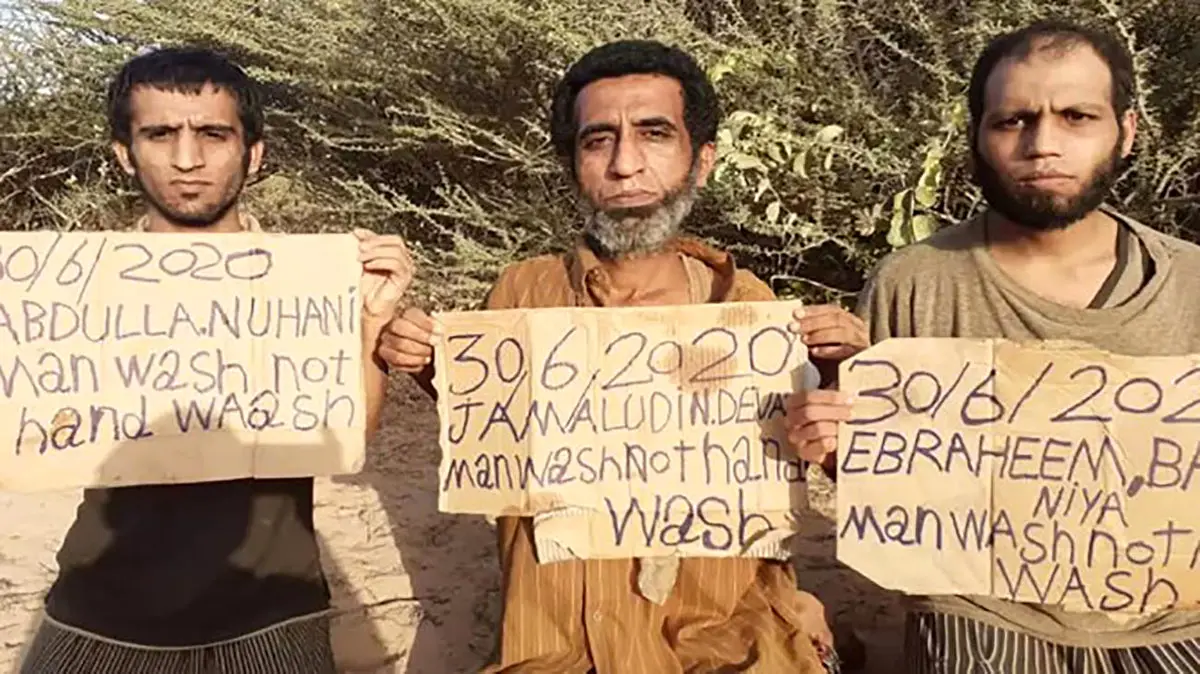 30/6/2020
ABDULLA.NUHANI
Man wash not
hand WAash
30,6,2020
JAMALUDIN.DEVA
manwashNothand
Wash
30/6/202
EBRAHEEM,BA
NiYA
ManwAshnoth
WASh